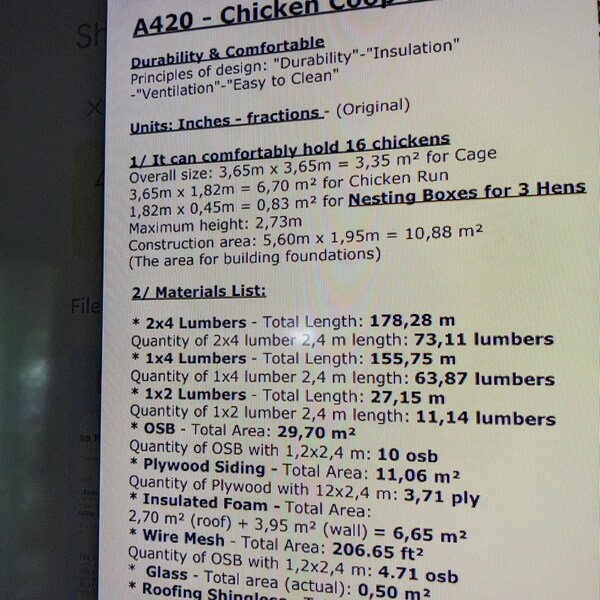 A420 - Chicken Coop
Durability & Comfortable
Principles of design: "Durability"-"Insulation"
-"Ventilation"-"Easy to Clean"
Units: Inches - fractions - (Original)
1/ It can comfortably hold 16 chickens
Overall size: 3,65m x 3,65m = 3,35 m² for Cage
3,65m x 1,82m = 6,70 m² for Chicken Run
1,82m x 0,45m = 0,83 m² for Nesting Boxes for 3 Hens
Maximum height: 2,73m
Construction area: 5,60m x 1,95m = 10,88 m²
(The area for building foundations)
File
2/ Materials List:
* 2x4 Lumbers - Total Length: 178,28 m
Quantity of 2x4 lumber 2,4 m length: 73,11 lumbers
* 1x4 Lumbers - Total Length: 155,75 m
Quantity of 1x4 lumber 2,4 m length: 63,87 lumbers
* 1x2 Lumbers - Total Length: 27,15 m
Quantity of 1x2 lumber 2,4 m length: 11,14 lumbers
* OSB - Total Area: 29,70 m²
Quantity of OSB with 1,2x2,4 m: 10 osb
* Plywood Siding - Total Area: 11,06 m²
Quantity of Plywood with 12x2,4 m: 3,71 ply
* Insulated Foam - Total Area:
2,70 m² (roof) + 3,95 m² (wall) = 6,65 m²
* Wire Mesh - Total Area: 206.65 ft²
Quantity of OSB with 1,2x2,4 m: 4.71 osb
* Glass - Total area (actual): 0,50 m²
* Roofing Shingless -